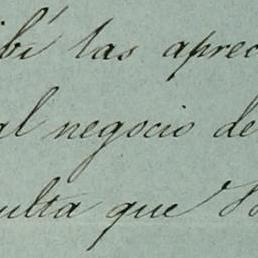 ibí las aprec
al negocio de
ulta que